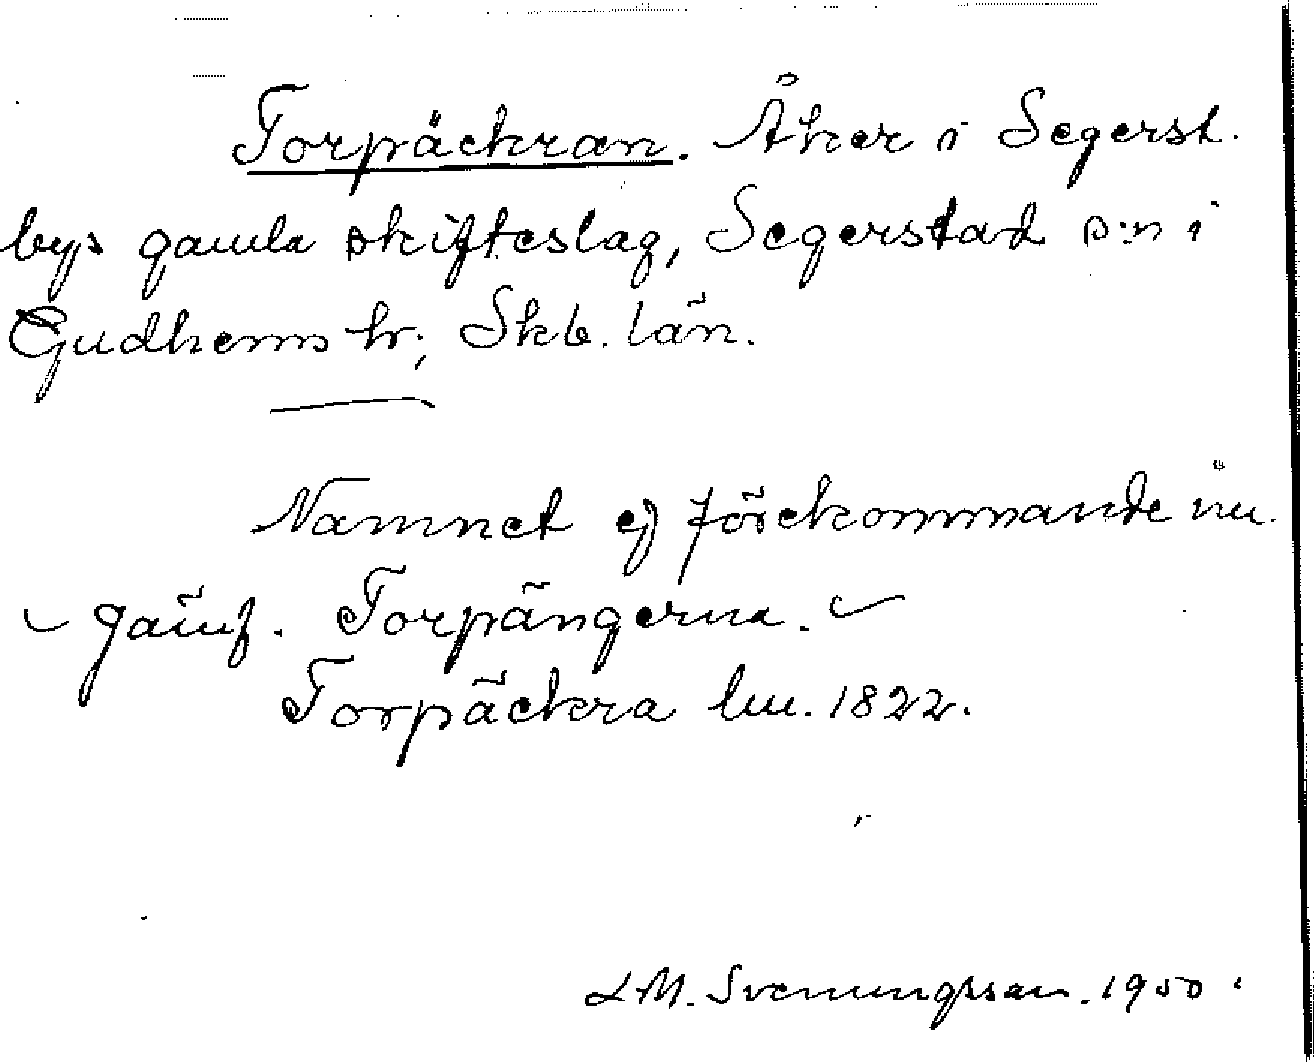 Torpäckran. Åker i Segerst.
bys gamla skifteslag, Segerstad s:n i
Gudhems hr; Skb. län.
Namnet ej förekommande nu.
Jämf. Torpängerna.
Torpäckra lm. 1822.
L.M. Svenungsson. 1950.